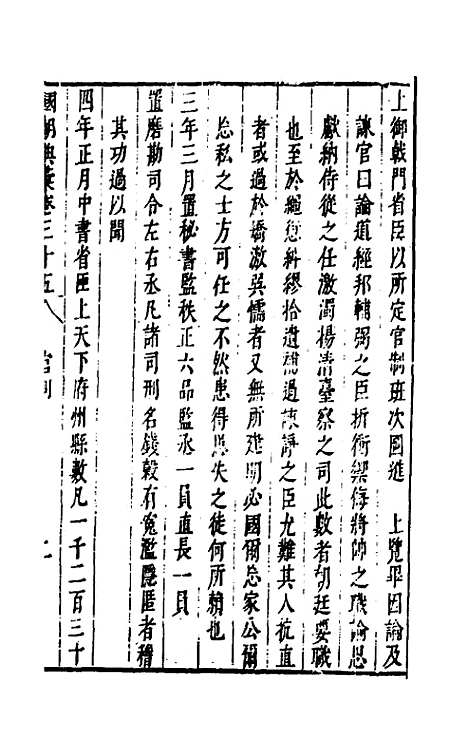 上御戟門省臣以所定官制班次圖進　上覽畢因論及
諫官曰論道經邦輔弼之臣折衝禦侮將帥之職論思
獻納侍從之任激濁揚清臺察之司此數者朝廷要職
也至於繩愆糾繆拾遺補過諫諍之臣尤難其人抗直
者或過於撟激巽懦者又無所建明必國爾忘家公爾
忘私之士方可任之不然患得患失之徒何所賴也
三年三月置秘書監秩正六品監丞一員直長一員
置磨勘司令左右丞凡諸司刑名錢穀有寃濫隱匿者稽
其功過以聞
四年正月中書省臣上天下府州縣數凡一千二百三十
國朝典彙卷三十五　官制